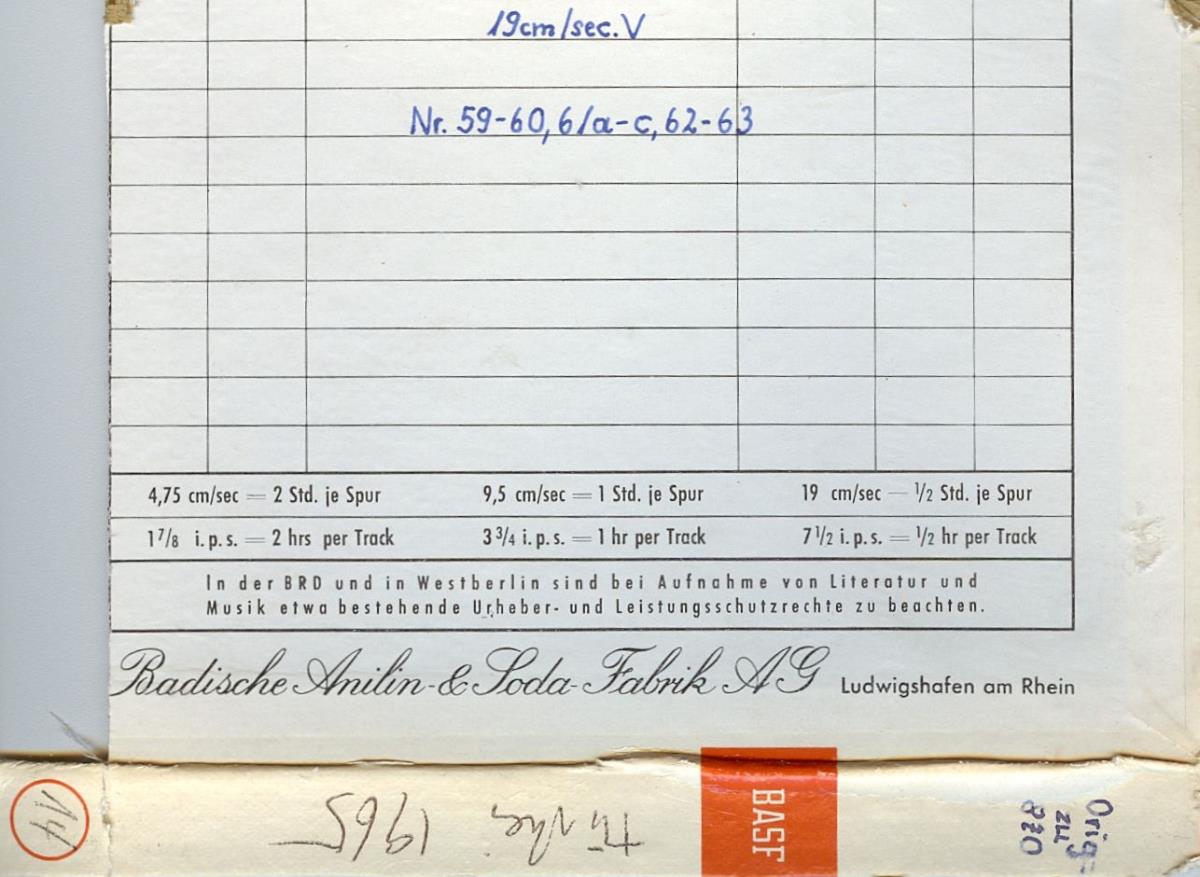 19cm/sec. V
Nr. 59-60, 61a-c, 62-63
4,75 cm/sec = 2 Std. je Spur 9,5 cm/sec = 1 Std. je Spur 19 cm/sec — 1/2 Std. je Spur
1 7/8 i.p.s. = 2 hrs per Track 3 3/4 i.p.s. = 1 hr per Track 7 1/2 i.p.s. = 1/2 hr per Track
In der BRD und in Westberlin sind bei Aufnahme von Literatur und
Musik etwa bestehende Urheber- und Leistungsschutzrechte zu beachten.
Badische Anilin- & Soda-Fabrik AG Ludwigshafen am Rhein
14
1965
BASF
Orig.
zu
820